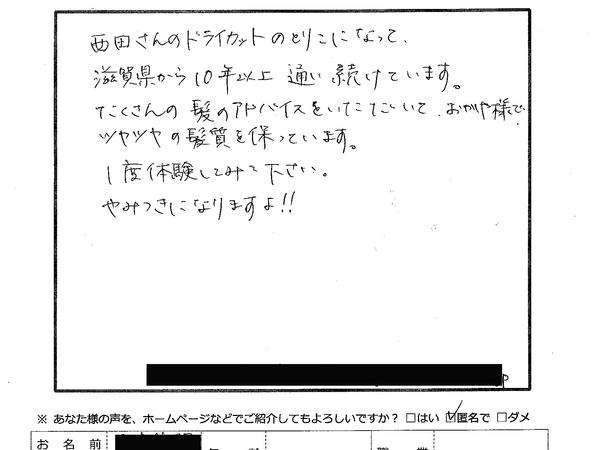 西田さんのドライカットのとりこになって、
滋賀県から10年以上 通い続けています。
たくさんの髪のアドバイスをいただいて、おかげ様で、
ツヤツヤの髪質を保っています。
1度体験してみて下さい。
やみつきになりますよ!!
※ あなた様の声を、ホームページなどでご紹介してもよろしいですか? □はい ☑匿名で □ダメ
お名前